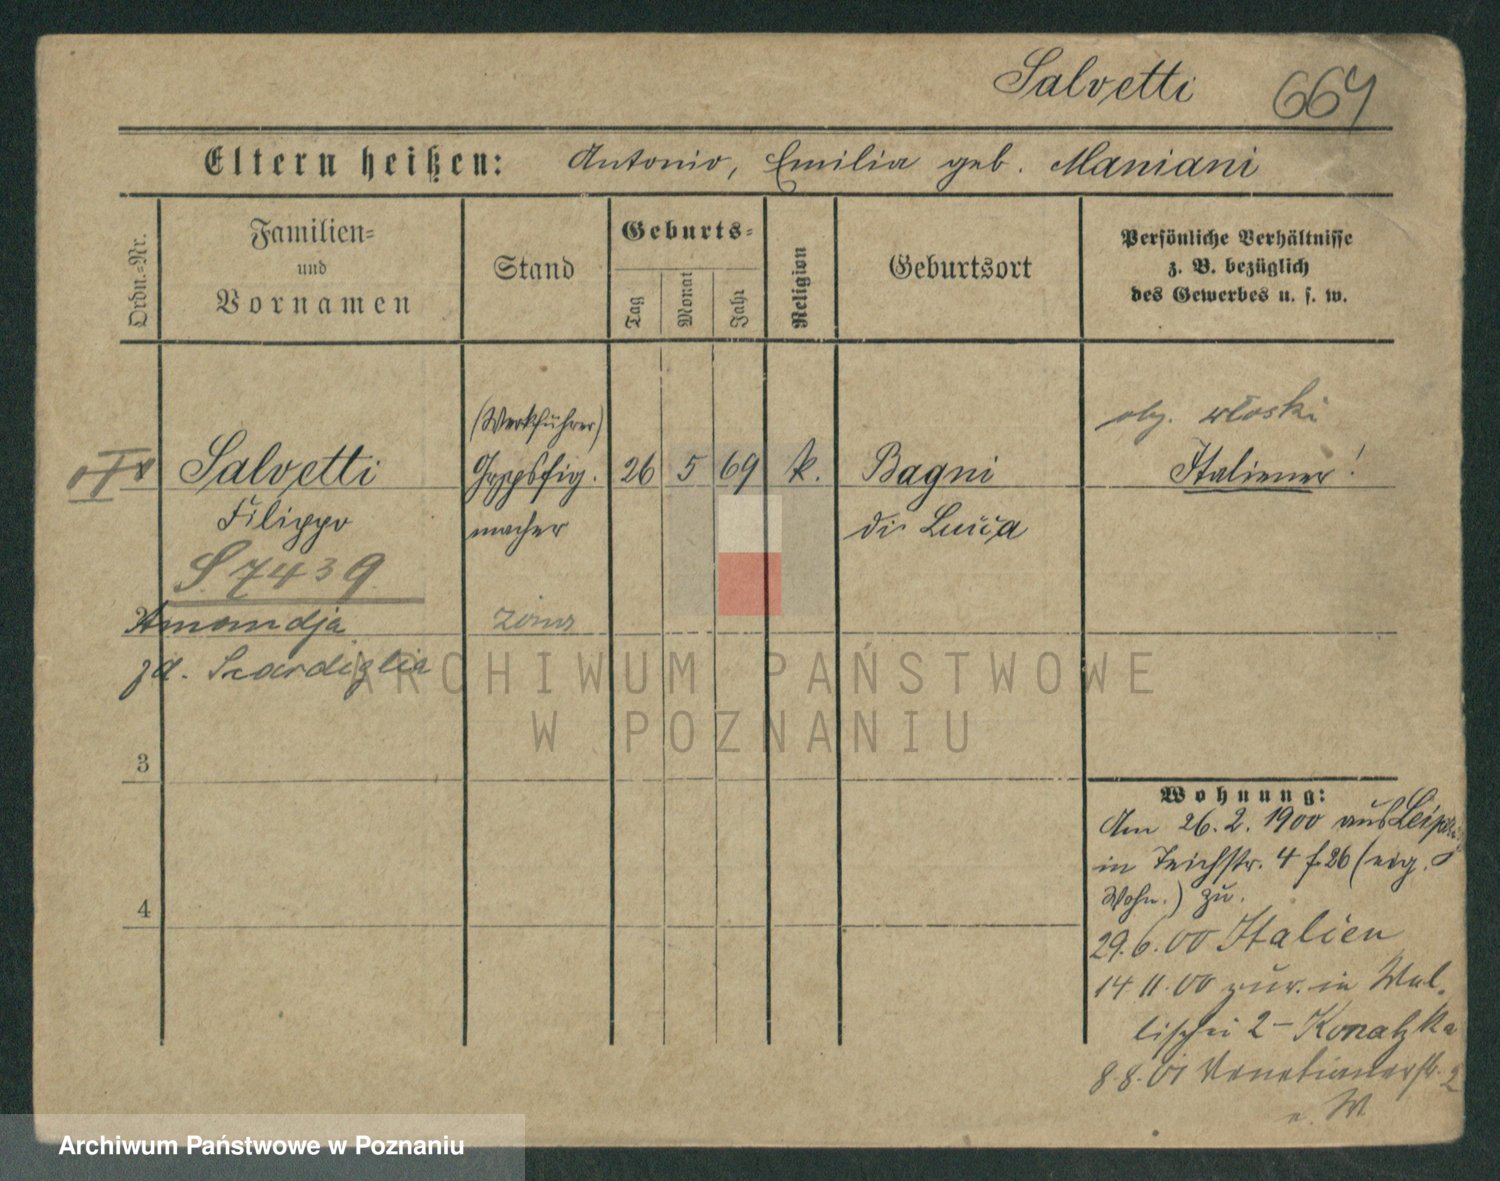 Salvetti 664
Eltern heißen: Antonio, Emilia geb. Maniani
Ordn.=Nr.
Familien= und Vornamen
Stand
Geburts=
Tag
Monat
Jahr
Religion
Geburtsort
Persönliche Verhältnisse
z. B. bezüglich
des Gewerbes u. s. w.
ob. włoski
(Werkführer)
Salvetti Gypsfig. 26 5 69 k. Bagni Italiener!
Filippo macher di Lucca
S. 7439
2
Amandja żona
zd. Scardiglia
3
4
Wohnung:
Am 26. 2. 1900 aus Leipzig
in Teichstr. 4 f. 26 (eig.
Wohn.) zu.
29. 6. 00 Italien
14 11. 00 zur. in Wal-
lischei 2 - Konatzka
8. 8. 01 Venetianerstr. 2
e. W.
ARCHIWUM PAŃSTWOWE
W POZNANIU
Archiwum Państwowe w Poznaniu